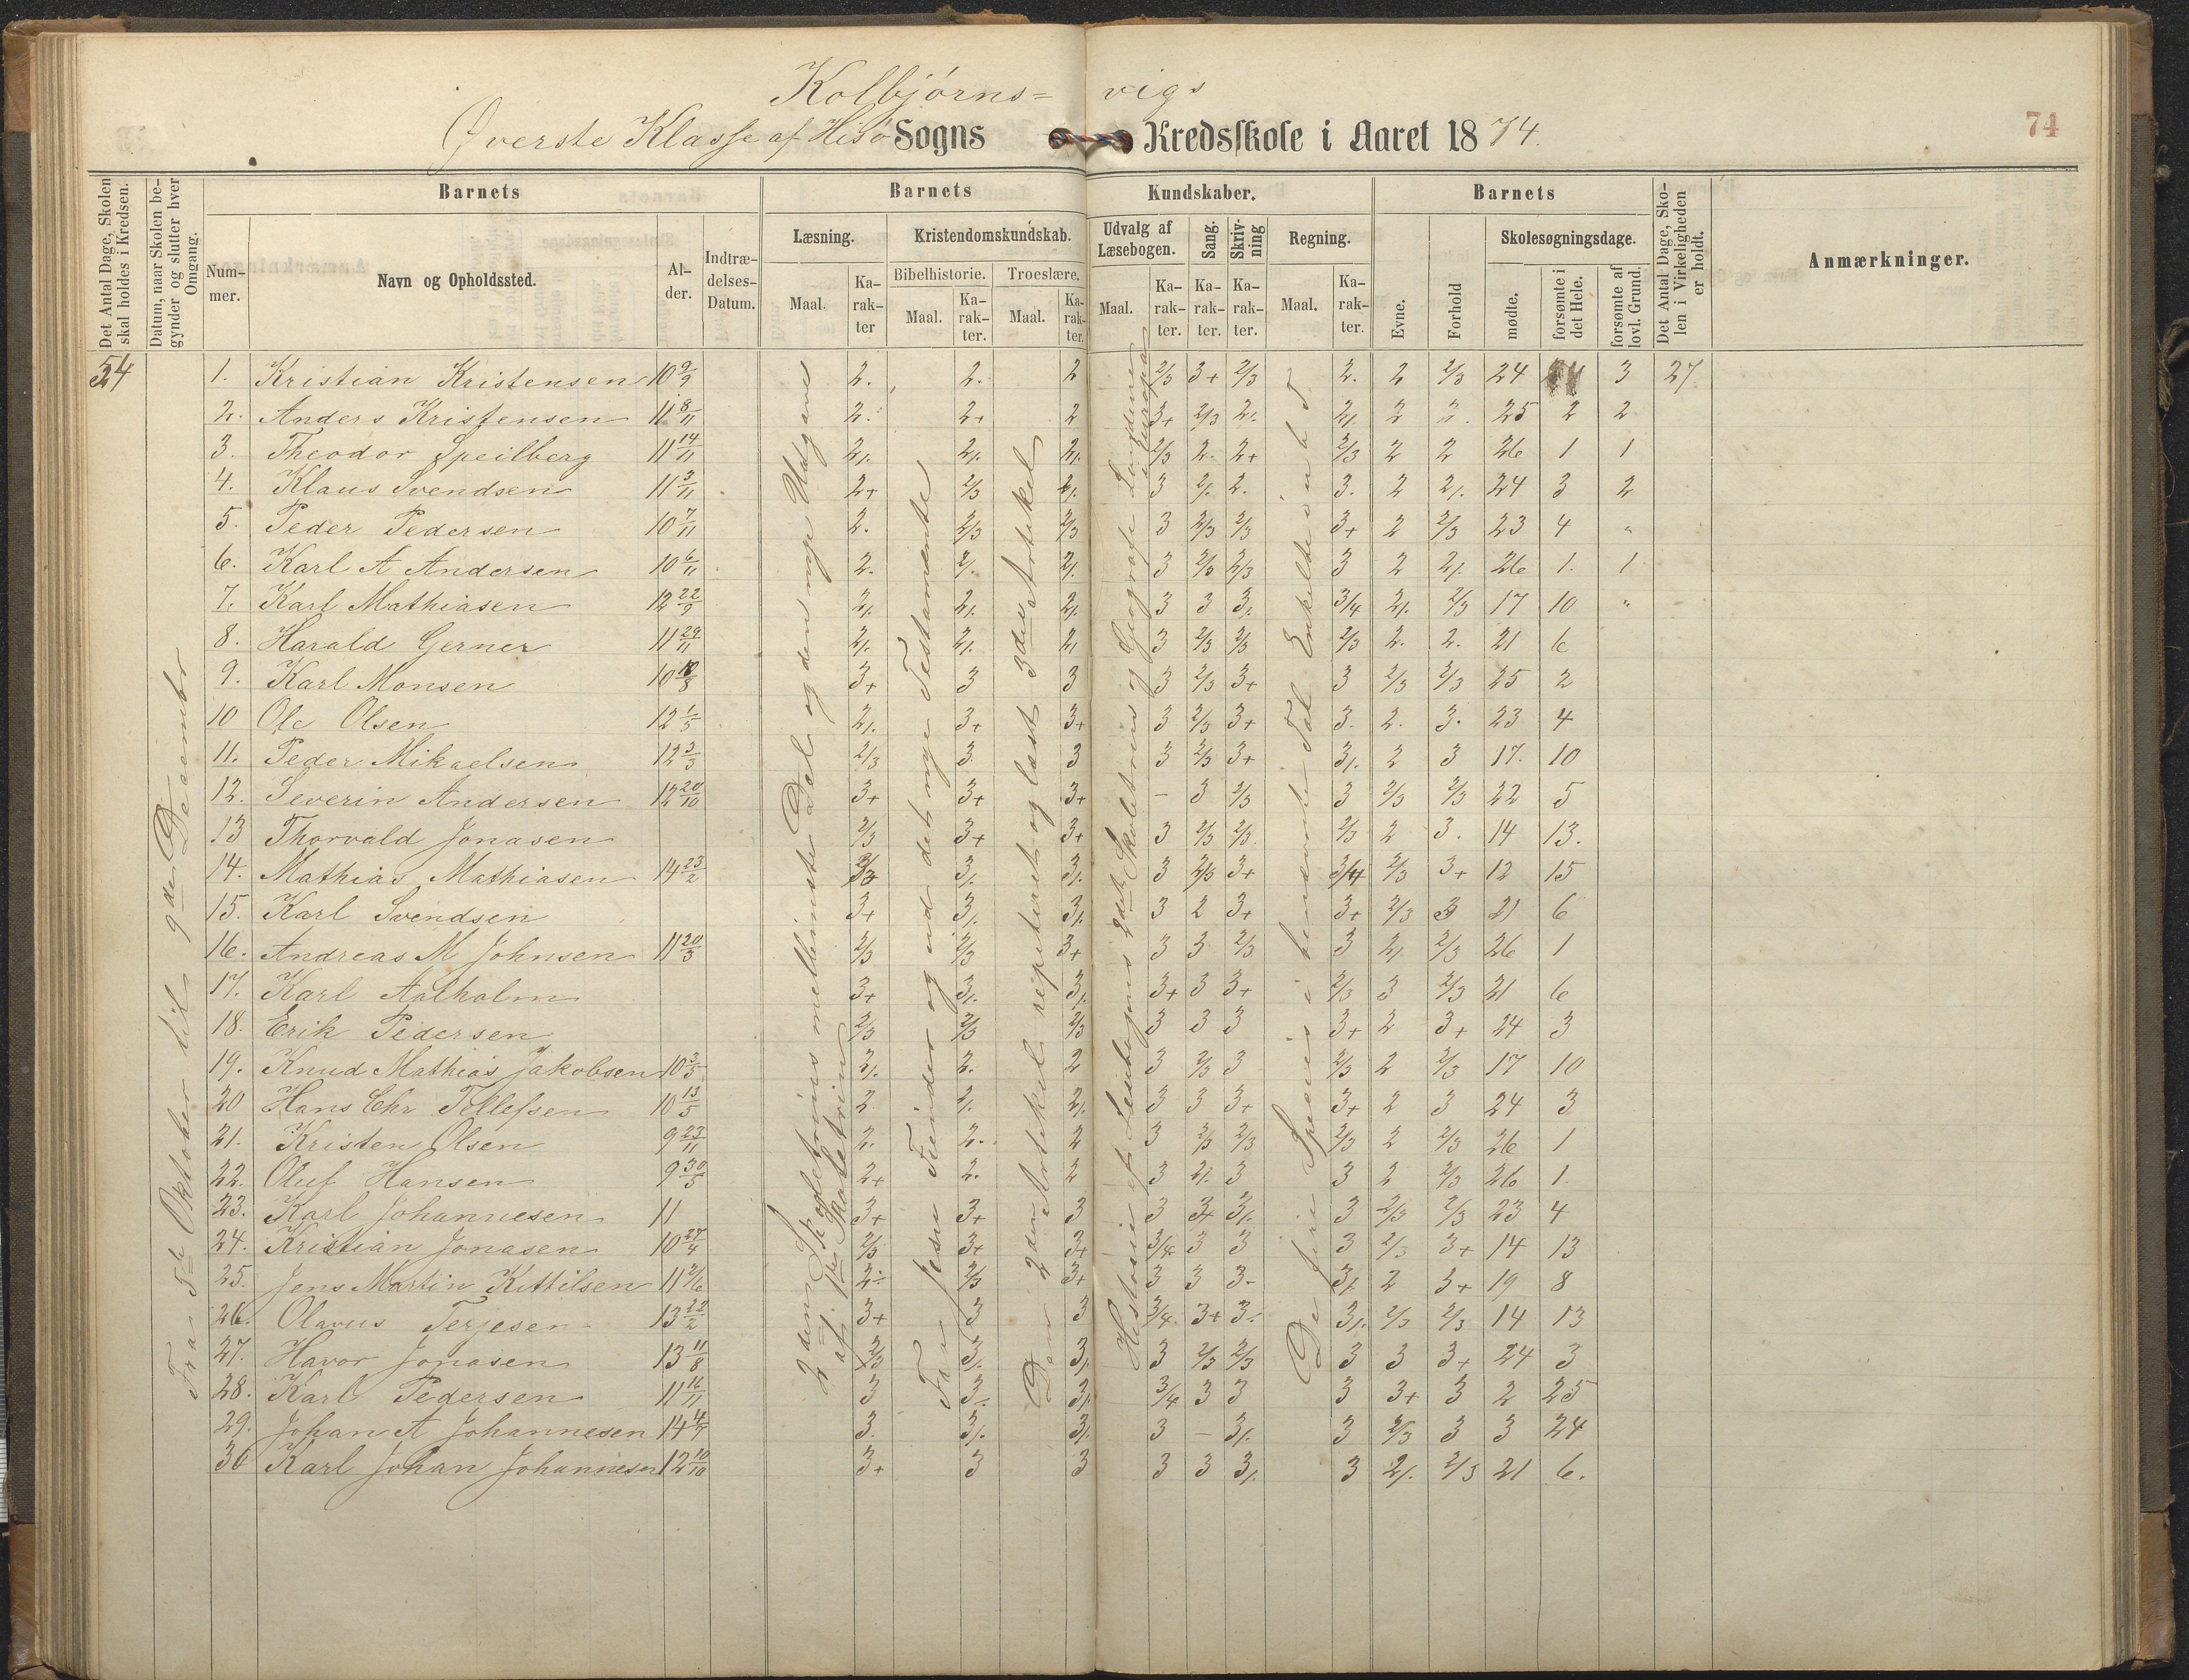 Kolbjørns= vigs
Øverste Klasse af Hisø Sogns Kredsskole i Aaret 1874.
74
Det Antal Dage, Skolen skal holdes i Kredsen.
Datum, naar Skolen begynder og slutter hver Omgang.
Barnets
Barnets
Kundskaber.
Barnets
Det Antal Dage, Skolen i Virkeligheden er holdt.
Anmærkninger.
Nummer.
Navn og Opholdssted.
Alder.
Indtrædelses-Datum.
Læsning.
Kristendomskundskab.
Udvalg af Læsebogen.
Sang.
Skrivning
Regning.
Evne.
Forhold
Skolesøgningsdage.
Bibelhistorie.
Troeslære.
Maal.
Karakter
Maal.
Karakter.
Maal.
Karakter.
Maal.
Karakter.
Karakter.
Karakter.
Maal.
Karakter.
mødte.
forsømte i det Hele.
forsømte af lovl. Grund.
Fra 5te Oktober til 9de December
2den Skoletrins mellemste Del og den nye Udgave
af 1ste Skoletrin
Fra Jesu Fiender og ud det nye Testamente
Den 2den Artikel repeteret og læst 3die Artikel
Historie af Læsebogens 2det Skoletrin og Geografi Landene i Europa
De fire Species i benævnte Tal
1. Kristian Kristensen 10 9/9 2. 2. 2 2/3 3+ 2/3 2. 2 2/3 24 3 27
2. Anders Kristensen 11 8/11 2. 2+ 2 3+ 2/3 2. 2/. 2 2. 25 2 2
3. Theodor Speilberg 11 14/11 2/. 2/. 2/. 2/3 2. 2+ 2/3 2 2 26 1 1
4. Klaus Svendsen 11 3/11 2+ 2/3 2/. 3 2/. 2. 3. 2 2/. 24 3 2
5. Peder Pedersen 10 7/11 2. 2/3 2/3 3 2/3 2/3 3+ 2 2/3 23 4 "
6. Karl A Andersen 10 6/11 2. 2/. 2/. 3 2/3 2/3 3 2 2/. 26 1. 1
7. Karl Mathiasen 12 22/9 2/. 2/. 2/. 3 3 3. 3/4 2/. 2/3 17 10 "
8. Harald Gerner 11 29/11 2/. 2/. 2/. 3 2/3 2/3 2/3 2. 2. 21 6
9. Karl Monsen 10 3+ 3 3 3 2/3 3+ 3 2/3 2/3 25 2
10 Ole Olsen 12 1/5 2/. 3+ 3+ 3 2/3 3+ 3. 2. 3. 23 4
11. Peder Mikaelsen 12 3/3 2/3 3. 3 3 2/3 3+ 3/. 2 3 17. 10
12. Severin Andersen 12 20/10 3+ 3+ 3+ – 3 2/3 3 2/3 2/3 22 5
13 Thorvald Jonasen 2/3 3+ 3+ 3 2/3 2/3. 2/3 2 3. 14 13.
14. Mathias Mathiasen 14 23/2 3/. 3/. 3 2/3 3+ 3/4 2/3 3+ 12 15
15. Karl Svendsen 3+ 3/. 3/. 3 2 3+ 3+ 2/3 3 21 6
16. Andreas M Johnsen 11 20/3 2/3 2/3 3+ 3 3 2/3 3 2/. 2/3 26 1
17. Karl Aalholm 3+ 3/. 3/. 3+ 3 3+ 2/3 3 2/3 21 6
18. Erik Pedersen 2/3 2/3 2/3 3 3 3 3+ 2 3+ 24 3
19. Knud Mathias Jakobsen 10 3/5 2/. 2. 2 3 2/3 3 2/3 2 2/3 17 10
20 Hans Chr Tellefsen 10 13/5 2. 2/. 2/. 3 3 3+ 3+ 2 3 24 3
21. Kristen Olsen 9 23/11 2. 2. 2 3 2/3 2/3 2/3 2 2/3 26 1
22. Oluf Hansen 9 30/5 2+ 2. 2 3 2/. 3 3 2 2/3 26 1.
23. Karl Johannesen 11 3+ 3+ 3 3 3+ 3/. 3 2/3 2/3 23 4
24. Kristian Jonasen 10 27/4 2/3 3+ 3+ 3/4 3 3 3 2/3 3+ 14 13
25. Jens Martin Kittilsen 11 2/6 2÷ 2/3 3+ 3 3 3- 3/. 2 3+ 19 8
26. Olavus Terjesen 13 22/2 3+ 3 3 3/4. 3+ 3÷ 3/. 2/3 2/3 14 13
27. Havor Jonasen 13 11/8 2/3 3/. 3/. 3 2/3 2/3 3 3 3+ 24 3
28. Karl Pedersen 11 16/11 3 3÷ 3/. 3/4 3 3 3 3+ 3 2 25
29. Johan A Johannesen 14 4/7 3. 3/. 3/. 3 – 3/. 3 2/3 3 3 24
30 Karl Johan Johannesen 12 10/10 3+ 3 3 3 3 3/. 3 2/. 2/3 21 6.